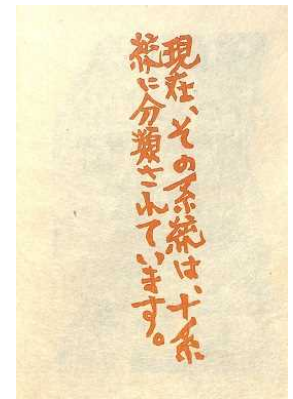 現在、その系統は、十系
統に分類されています。